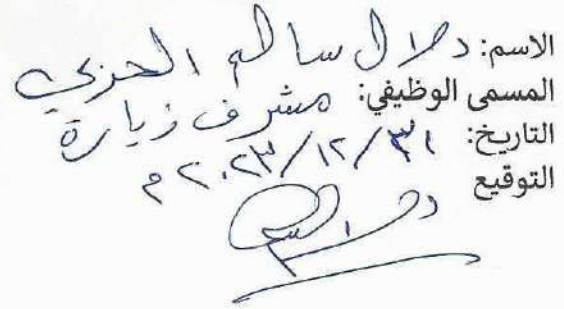 الاسم: دلال سالم الحزي
المسمى الوظيفي: مشرف زيارة
التاريخ: ٢٠٢٣/١٢/٣١ م
التوقيع